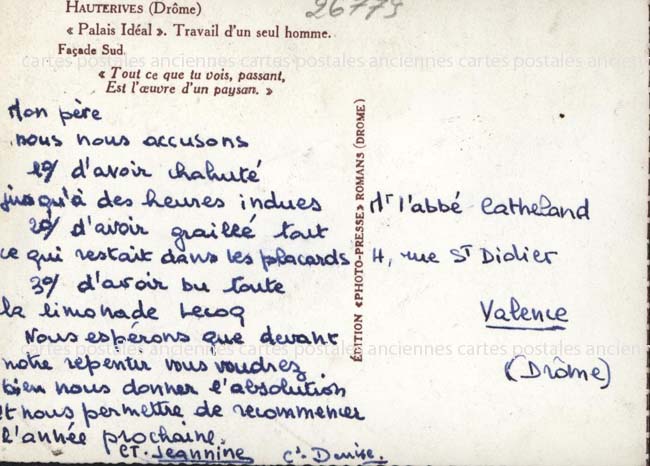 HAUTERIVES (Drôme)
« Palais Idéal ». Travail d'un seul homme.
Façade Sud
« Tout ce que tu vois, passant,
Est l'œuvre d'un paysan. »
26775
cartes postales anciennes cartes postales anciennes cartes postales anciennes
Mon père
nous nous accusons
1º/ d'avoir chahuté
jusqu'à des heures indues
2º/ d'avoir graillé tout
ce qui restait dans les placards
3º/ d'avoir bu toute
la limonade Lecoq
Nous espérons que devant
notre repentir vous voudrez
bien nous donner l'absolution
et nous permettre de recommencer
l'année prochaine.
CT. Jeannine Cº Denise.
ÉDITION «PHOTO-PRESSE» ROMANS (DROME)
Mr l'abbé Catheland
4, rue St Didier
Valence
(Drôme)
cartes postales anciennes cartes postales anciennes cartes postales ancien